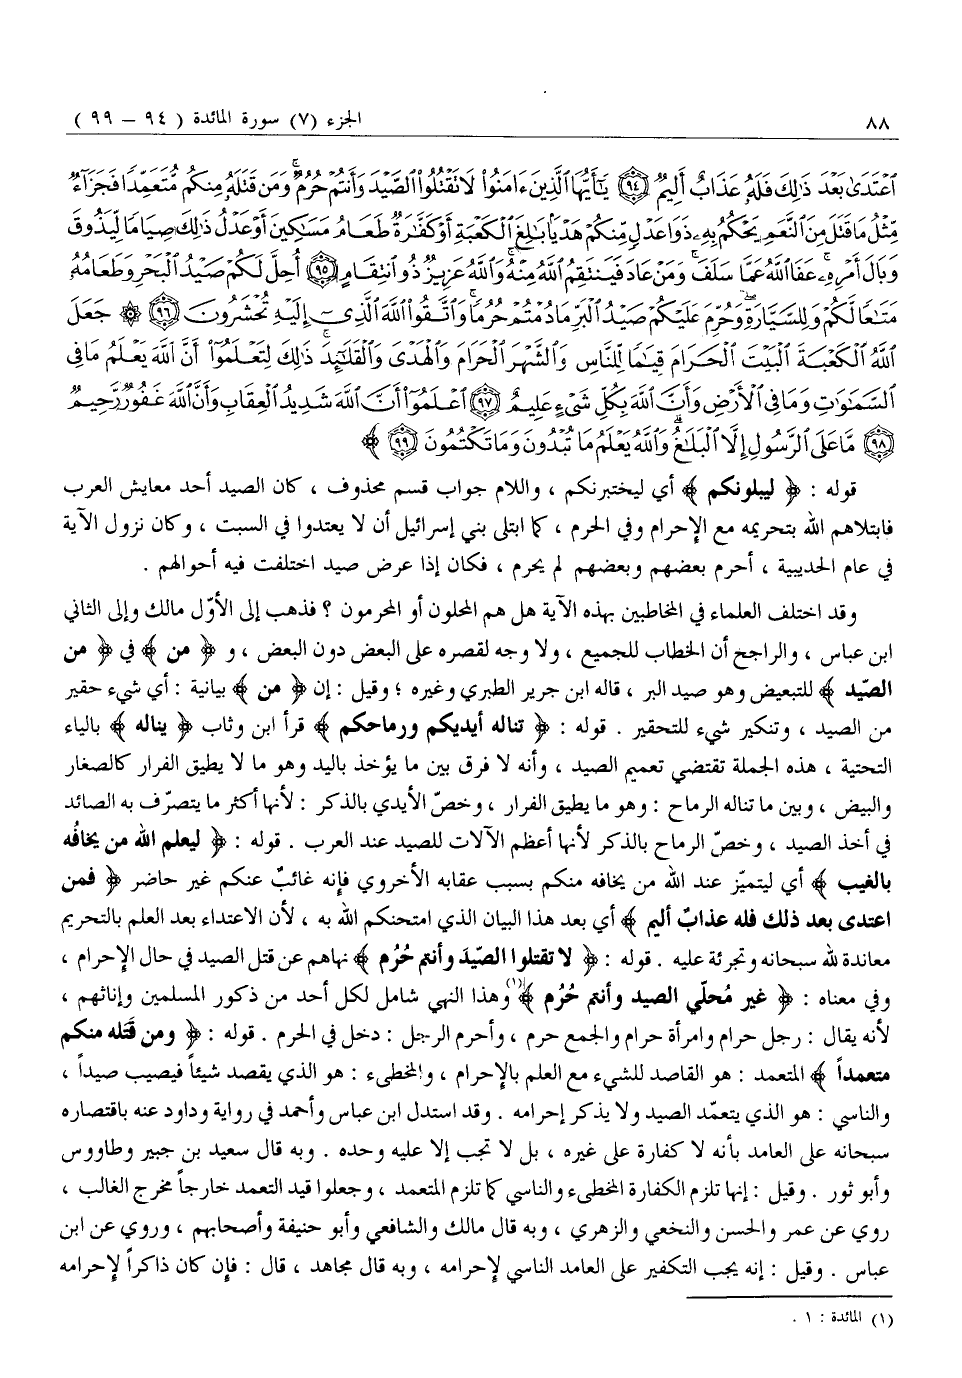 ٨٨
الجزء (٧) سورة المائدة ( ٩٤ – ٩٩ )
اَعْتَدَىٰ بَعْدَ ذَٰلِكَ فَلَهُۥ عَذَابٌ أَلِيمٌ ﴿٩٤﴾ يَٰٓأَيُّهَا ٱلَّذِينَ ءَامَنُوا۟ لَا تَقْتُلُوا۟ ٱلصَّيْدَ وَأَنتُمْ حُرُمٌ ۚ وَمَن قَتَلَهُۥ مِنكُم مُّتَعَمِّدًا فَجَزَآءٌ
مِّثْلُ مَا قَتَلَ مِنَ ٱلنَّعَمِ يَحْكُمُ بِهِۦ ذَوَا عَدْلٍ مِّنكُمْ هَدْيًۢا بَٰلِغَ ٱلْكَعْبَةِ أَوْ كَفَّٰرَةٌ طَعَامُ مَسَٰكِينَ أَوْ عَدْلُ ذَٰلِكَ صِيَامًا لِّيَذُوقَ
وَبَالَ أَمْرِهِۦ ۗ عَفَا ٱللَّهُ عَمَّا سَلَفَ ۚ وَمَنْ عَادَ فَيَنتَقِمُ ٱللَّهُ مِنْهُ ۗ وَٱللَّهُ عَزِيزٌ ذُو ٱنتِقَامٍ ﴿٩٥﴾ أُحِلَّ لَكُمْ صَيْدُ ٱلْبَحْرِ وَطَعَامُهُۥ
مَتَٰعًا لَّكُمْ وَلِلسَّيَّارَةِ ۖ وَحُرِّمَ عَلَيْكُمْ صَيْدُ ٱلْبَرِّ مَا دُمْتُمْ حُرُمًا ۗ وَٱتَّقُوا۟ ٱللَّهَ ٱلَّذِىٓ إِلَيْهِ تُحْشَرُونَ ﴿٩٦﴾ ۞ جَعَلَ
ٱللَّهُ ٱلْكَعْبَةَ ٱلْبَيْتَ ٱلْحَرَامَ قِيَٰمًا لِّلنَّاسِ وَٱلشَّهْرَ ٱلْحَرَامَ وَٱلْهَدْىَ وَٱلْقَلَٰٓئِدَ ۚ ذَٰلِكَ لِتَعْلَمُوٓا۟ أَنَّ ٱللَّهَ يَعْلَمُ مَا فِى
ٱلسَّمَٰوَٰتِ وَمَا فِى ٱلْأَرْضِ وَأَنَّ ٱللَّهَ بِكُلِّ شَىْءٍ عَلِيمٌ ﴿٩٧﴾ ٱعْلَمُوٓا۟ أَنَّ ٱللَّهَ شَدِيدُ ٱلْعِقَابِ وَأَنَّ ٱللَّهَ غَفُورٌ رَّحِيمٌ
﴿٩٨﴾ مَّا عَلَى ٱلرَّسُولِ إِلَّا ٱلْبَلَٰغُ ۗ وَٱللَّهُ يَعْلَمُ مَا تُبْدُونَ وَمَا تَكْتُمُونَ ﴿٩٩﴾ ﴾
قوله : ﴿ ليبلونكم ﴾ أي ليختبرنكم ، واللام جواب قسم محذوف ، كان الصيد أحد معايش العرب
فابتلاهم الله بتحريمه مع الإحرام وفي الحرم ، كما ابتلى بني إسرائيل أن لا يعتدوا في السبت ، وكان نزول الآية
في عام الحديبية ، أحرم بعضهم وبعضهم لم يحرم ، فكان إذا عرض صيد اختلفت فيه أحوالهم .
وقد اختلف العلماء في المخاطبين بهذه الآية هل هم المحلون أو المحرمون ؟ فذهب إلى الأوّل مالك وإلى الثاني
ابن عباس ، والراجح أن الخطاب للجميع ، ولا وجه لقصره على البعض دون البعض ، و ﴿ من ﴾ في ﴿ من
الصّيد ﴾ للتبعيض وهو صيد البر ، قاله ابن جرير الطبري وغيره ؛ وقيل : إن ﴿ من ﴾ بيانية : أي شيء حقير
من الصيد ، وتنكير شيء للتحقير . قوله : ﴿ تناله أيديكم ورماحكم ﴾ قرأ ابن وثاب ﴿ يناله ﴾ بالياء
التحتية ، هذه الجملة تقتضي تعميم الصيد ، وأنه لا فرق بين ما يؤخذ باليد وهو ما لا يطيق الفرار كالصغار
والبيض ، وبين ما تناله الرماح : وهو ما يطيق الفرار ، وخصّ الأيدي بالذكر : لأنها أكثر ما يتصرّف به الصائد
في أخذ الصيد ، وخصّ الرماح بالذكر لأنها أعظم الآلات للصيد عند العرب . قوله : ﴿ ليعلم الله من يخافُه
بالغيب ﴾ أي ليتميّز عند الله من يخافه منكم بسبب عقابه الأخروي فإنه غائبٌ عنكم غير حاضر ﴿ فمن
اعتدى بعد ذلك فله عذابٌ أليم ﴾ أي بعد هذا البيان الذي امتحنكم الله به ، لأن الاعتداء بعد العلم بالتحريم
معاندة لله سبحانه وتجرئة عليه . قوله : ﴿ لا تقتلوا الصّيدَ وأنتم حُرُم ﴾ نهاهم عن قتل الصيد في حال الإحرام ،
وفي معناه : ﴿ غير مُحلّي الصيد وأنتم حُرُم ﴾(١) وهذا النهي شامل لكل أحد من ذكور المسلمين وإناثهم ،
لأنه يقال : رجل حرام وامرأة حرام والجمع حرم ، وأحرم الرجل : دخل في الحرم . قوله : ﴿ ومن قَتَله منكم
متعمداً ﴾ المتعمد : هو القاصد للشيء مع العلم بالإحرام ، والمخطىء : هو الذي يقصد شيئاً فيصيب صيداً ،
والناسي : هو الذي يتعمّد الصيد ولا يذكر إحرامه . وقد استدل ابن عباس وأحمد في رواية وداود عنه باقتصاره
سبحانه على العامد بأنه لا كفارة على غيره ، بل لا تجب إلا عليه وحده . وبه قال سعيد بن جبير وطاووس
وأبو ثور . وقيل : إنها تلزم الكفارة المخطىء والناسي كما تلزم المتعمد ، وجعلوا قيد التعمد خارجاً مخرج الغالب ،
روي عن عمر والحسن والنخعي والزهري ، وبه قال مالك والشافعي وأبو حنيفة وأصحابهم ، وروي عن ابن
عباس . وقيل : إنه يجب التكفير على العامد الناسي لإحرامه ، وبه قال مجاهد ، قال : فإن كان ذاكراً لإحرامه
(١) المائدة : ١ .